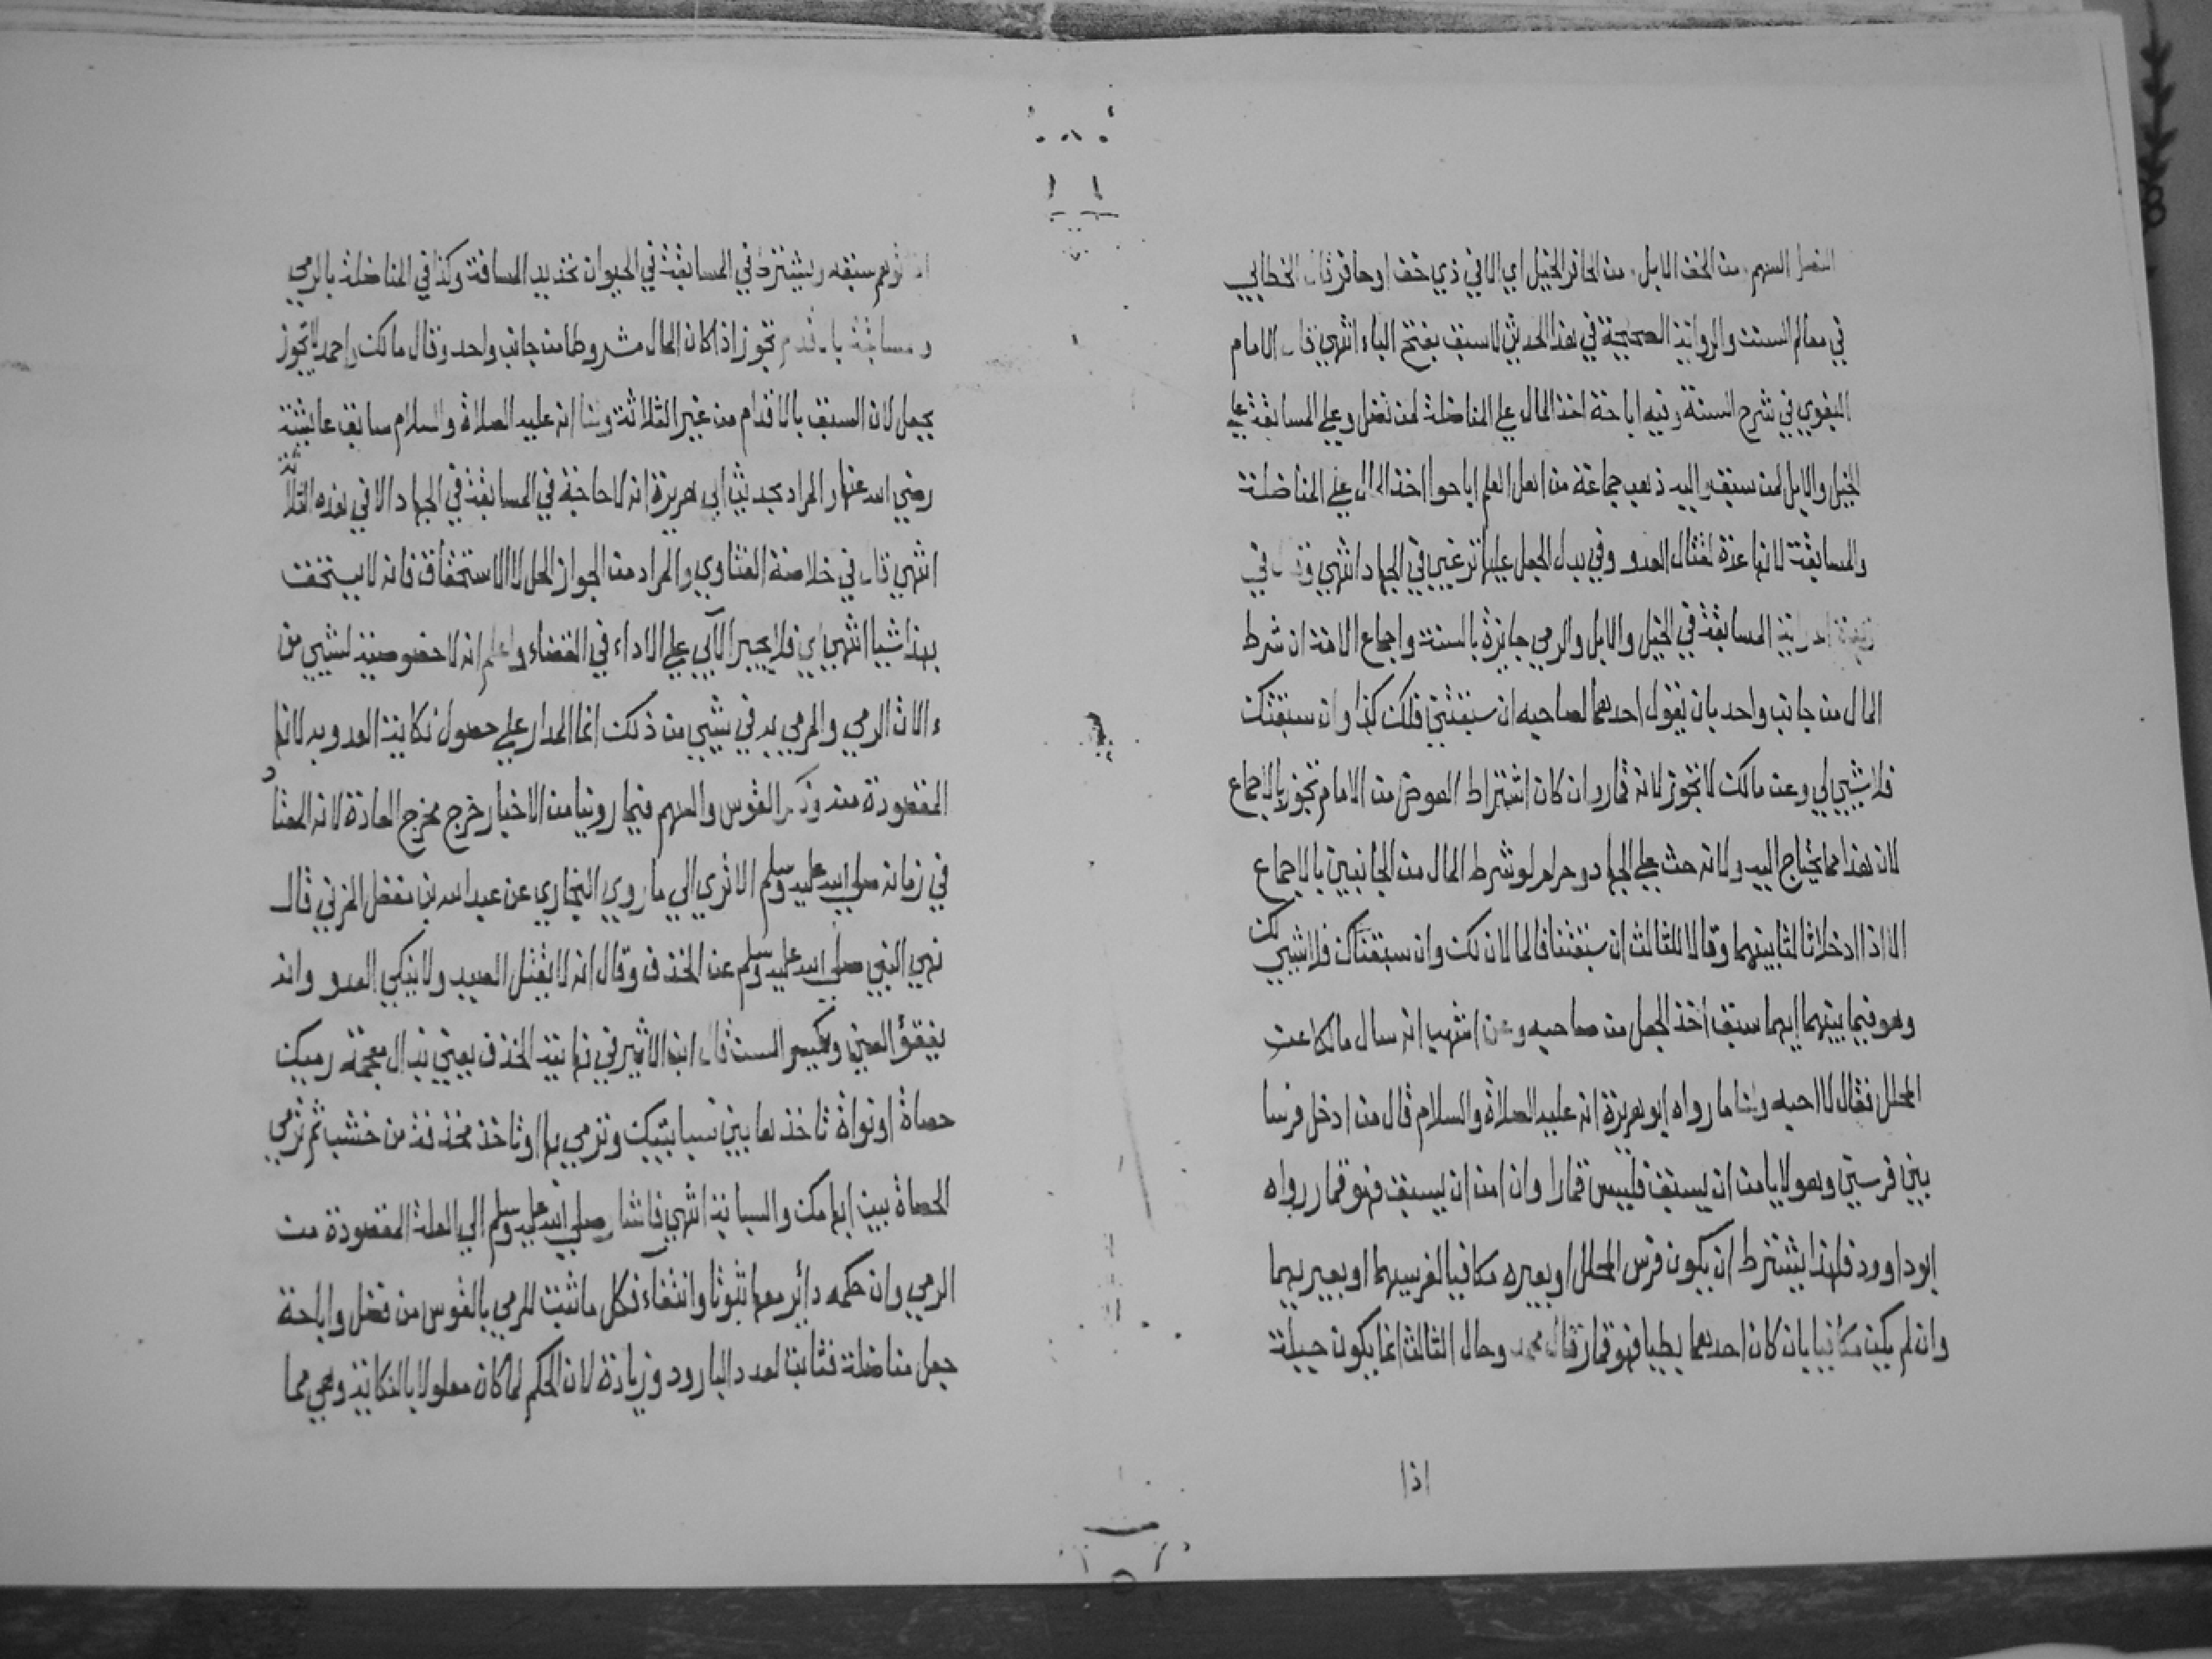 النصل السهم ومن الخف الابل ومن الحافر الخيل اي الا في ذي خف او حافر قال الخطابي
في معالم السنن والرواية الصحيحة في هذا الحديث لا سبق بفتح الباء انتهي قال الامام
البغوي في شرح السنة وفيه اباحة اخذ المال علي المناضلة لمن نضل وعلي المسابقة علي
الخيل والابل لمن سبق واليه ذهب جماعة من اهل العلم اباحوا اخذ المال علي المناضلة
والمسابقة لانها عدة لقتال العدو وفي بدل الجعل عليها ترغيب في الجهاد انتهي وقال في
المسابقة في الخيل والابل والرمي جايزة بالسنة واجماع الامة ان شرط
المال من جانب واحد بان يقول احدهما لصاحبه ان سبقتني فلك كذا وان سبقتك
فلا شيي لي وعن مالك لا تجوز لانه قمار وان كان اشتراط العوض من الامام تجوز بالاجماع
لان هذا مما يحتاج اليه ولانه حث علي الجهاد وحرام لو شرط المال من الجانبين بالاجماع
الا اذا ادخلا ثالثا بينهما وقالا للثالث ان سبقتنا فالمالان لك وان سبقناك فلا شيي لك
وهو فيما بينهما ايهما سبق اخذ الجعل من صاحبه وعن اشهب انه سال مالكا عن
المحلل فقال لا احبه ولنا ما رواه ابو هريرة انه عليه الصلاة والسلام قال من ادخل فرسا
بين فرسين وهو لا يامن ان يسبق فليس قمارا وان امن ان يسبق فهو قمار رواه
ابو داوود فلهذا يشترط ان يكون فرس المحلل او بعيره مكافيا لفرسيهما او بعيريهما
وان لم يكن مكافيا بان كان احدهما بطيا فهو قمار قال محمد وحال الثالث انما يكون حيلة
اذا
اذا توهم سبقه ويشترط في المسابقة في الحيوان تحديد المسافة وكذا في المناضلة بالرمي
والمسابقة بالاقدام تجوز اذا كان المال مشروطا من جانب واحد وقال مالك واحمد لا تجوز
بجعل لان السبق بالاقدام من غير الثلاثة ولنا انه عليه الصلاة والسلام سابق عائشة
رضي الله عنها والمراد بحديث ابي هريرة انه لا حاجة في المسابقة في الجهاد الا في هذه الثلاثة
انتهي قال في خلاصة الفتاوي والمراد من الجواز الحل لا الاستحقاق فانه لا يستحق
بهذا شيا انتهي اي فلا يجبر الآبي علي الاداء في القضاء واعلم انه لا خصوصية لشيي من
ءالات الرمي والمرمي به في شيي من ذلك انما المدار علي حصول نكاية العدو به لانها
المقصودة منه وذكر القوس والسهم فيما روينا من الاخبار خرج مخرج العادة لانه المعتاد
في زمانه صلي الله عليه وسلم الا تري الي ما روي البخاري عن عبد الله بن مغفل المزني قال
نهي النبي صلي الله عليه وسلم عن الخذف وقال انه لا يقتل الصيد ولا ينكي العدو وانه
يفقؤ العين ويكسر السن قال ابن الاثير في نهايته الخذف يعني بذال معجمة رميك
حصاة او نواة تاخذها بين سبابتيك وترمي بها او تاخذ مخذفة من خشب ثم ترمي
الحصاة بين ابهامك والسبابة انتهي فاشار صلي الله عليه وسلم الي العلة المقصودة من
الرمي وان حكمه دائر معها ثبوتا وانتفاء فكل ما ثبت للرمي بالقوس من فضل واباحة
جعل مناضلة فثابت لعدد البارود وزيادة لان الحكم لما كان معلولا بالنكاية وهي مما